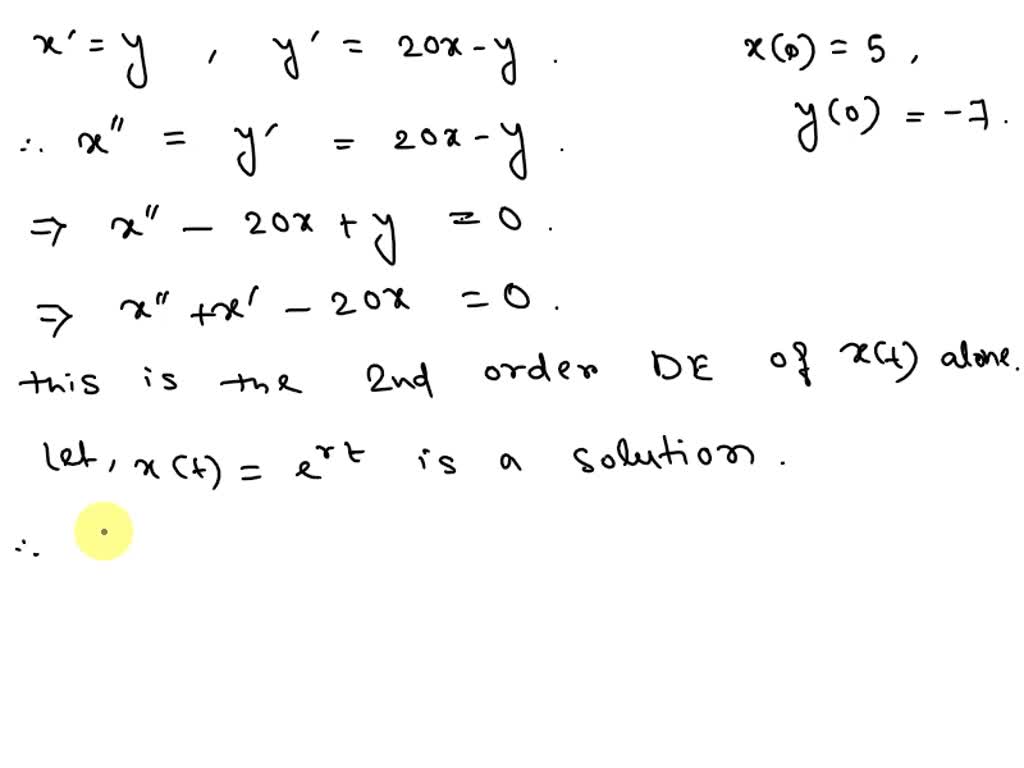 x' = y , y' = 20x - y . x(0) = 5 ,
y(0) = -7 .
∴ x'' = y' = 20x - y .
⇒ x'' - 20x + y = 0 .
⇒ x'' + x' - 20x = 0 .
this is the 2nd order DE of x(t) alone.
Let, x(t) = e^{rt} is a solution .
∴